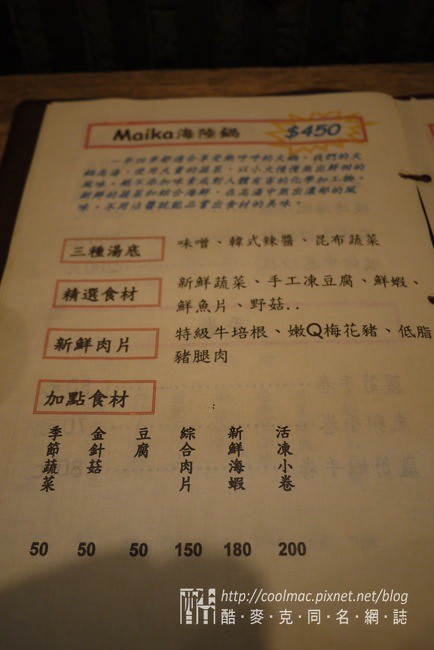 Maika海陸鍋
$450
一年四季都適合享受熱呼呼的火鍋，我們的火
味噌、韓式辣醬、昆布蔬菜
三種湯底
新鮮蔬菜、手工凍豆腐、鮮蝦、
精選食材
鮮魚片、野菇..
特級牛培根、嫩Q梅花豬、低脂
新鮮肉片
豬腿肉
加點食材
季節蔬菜
金針菇
豆腐
綜合肉片
新鮮海蝦
活凍小卷
50 50 50 150 180 200
http://coolmac.pixnet.net/blog
酷·麥·克·同·名·網·誌